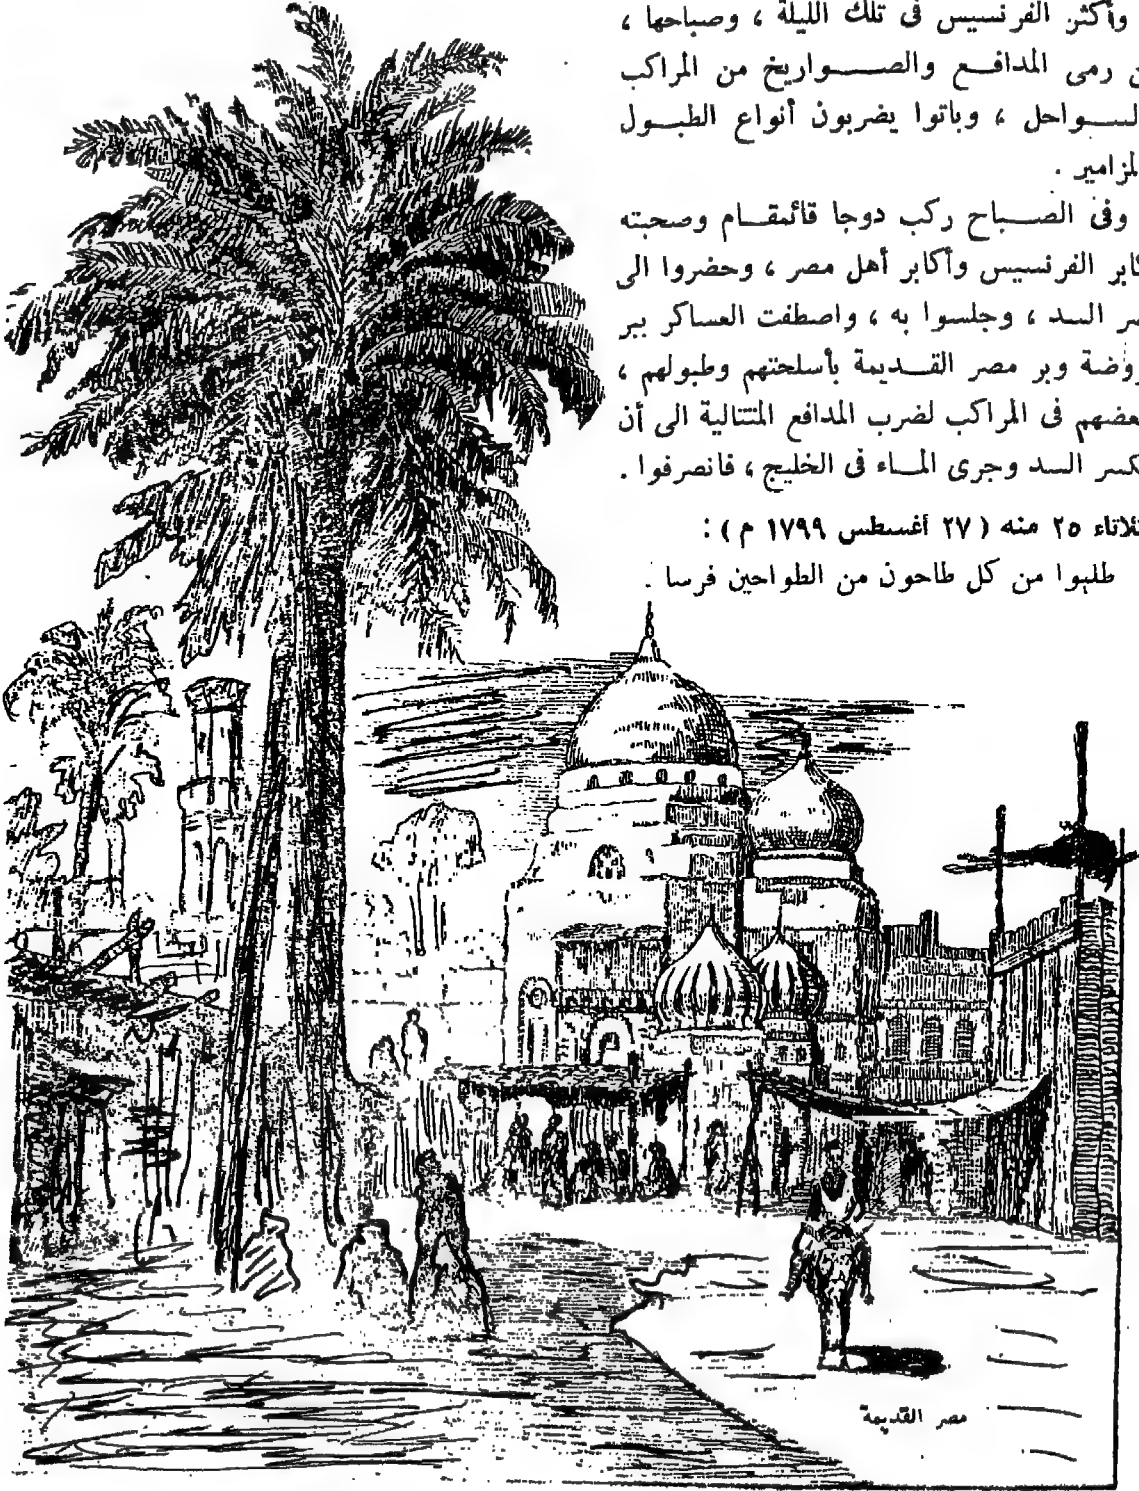 وأكثر الفرنسيس فى تلك الليلة ، وصباحها ،
رمى المدافع والصواريخ من المراكب
ـسواحل ، وباتوا يضربون أنواع الطبول
لمزامير .
وفى الصباح ركب دوجا قائمقام وصحبته
ـابر الفرنسيس وأكابر أهل مصر ، وحضروا الى
ـر السد ، وجلسوا به ، واصطفت العساكر ببر
ـروضة وبر مصر القديمة بأسلحتهم وطبولهم ،
ـعضهم فى المراكب لضرب المدافع المتتالية الى أن
ـكسر السد وجرى الماء فى الخليج ، فانصرفوا .
ـلاثاء ٢٥ منه ( ٢٧ أغسطس ١٧٩٩ م ) :
طلبوا من كل طاحون من الطواحين فرسا .
مصر القديمة